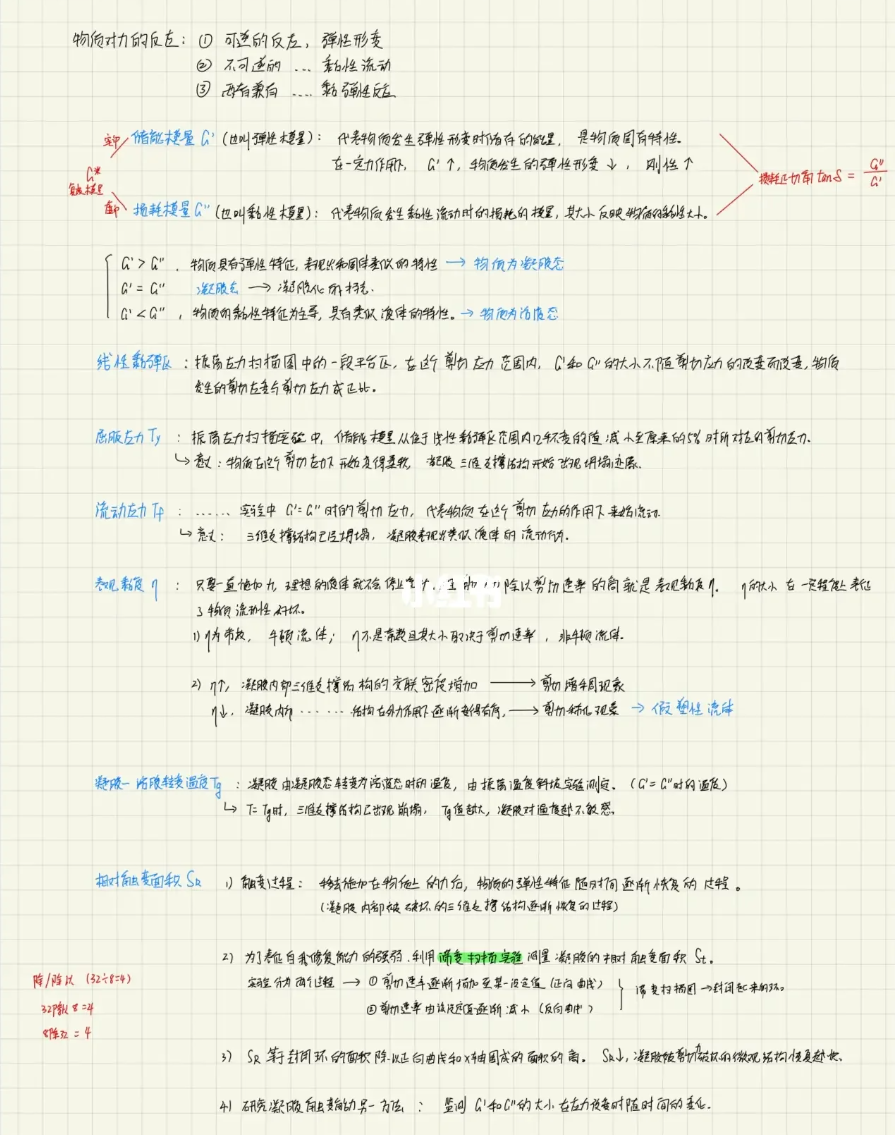 物质对力的反应：① 可逆的反应，弹性形变
② 不可逆的 … 黏性流动
③ 两者兼有 …. 黏弹性反应
实部 储能模量 G' (也叫弹性模量)：代表物质发生弹性形变时储存的能量，是物质固有特性。
在一定力作用下，G'↑，物质发生的弹性形变↓，刚性↑
G*
复数模量
损耗正切角 tanδ = G''/G'
虚部 损耗模量 G'' (也叫黏性模量)：代表物质发生黏性流动时的损耗的模量，其大小反映物质的黏性大小。
G' > G''，物质具有弹性特征，表现出和固体类似的特性 → 物质为凝胶态
G' = G'' 凝胶点 → 凝胶化
G' < G''，物质的黏性特征为主导，具有类似液体的特性。→ 物质为溶液态
线性黏弹区：振荡应力扫描图中的一段平台区，在这个剪切应力范围内，G'和G''的大小不随剪切应力的改变而改变，物质
发生的剪切应变与剪切应力成正比。
屈服应力 Ty：振荡应力扫描实验中，储能模量从位于线性黏弹区范围内几乎不变的值减小至原来的5%时所对应的剪切应力。
↳ 意义：物质在这个剪切应力下开始变得柔软，凝胶三维支撑结构开始出现坍塌迹象。
流动应力 Tf：…… 实验中 G'=G''时的剪切应力，代表物质在这个剪切应力的作用下开始流动。
↳ 意义：三维支撑结构已经坍塌，凝胶表现出类似液体的流动行为。
表观黏度 η：只要一直施加力，理想的液体就不会停止 除以剪切速率的商就是表观黏度η。η的大小在一定程度上表征
了物质流动性好坏。
1) η为常数，牛顿流体；η不是常数且其大小取决于剪切速率，非牛顿流体。
2) η↑，凝胶内部三维支撑结构的交联密度增加 → 剪切增稠现象
η↓，凝胶内部 …… 结构在外力作用下逐渐变得有序，→ 剪切稀化现象 → 假塑性流体
凝胶-溶胶转变温度 Tg：凝胶由凝胶态转变为溶液态时的温度，由振荡温度斜坡实验测定。(G'=G''时的温度)
↳ T=Tg时，三维支撑结构已出现崩塌，Tg值越大，凝胶对温度越不敏感。
相对触变面积 SR 1) 触变过程：移去施加在物质上的力后，物质的弹性特征随时间逐渐恢复的过程。
(凝胶内部被破坏的三维支撑结构逐渐恢复的过程)
2) 为了表征自我修复能力的强弱，利用滞变扫描实验测量凝胶的相对触变面积 St。
实验分为两个过程 → ① 剪切速率逐渐增加至某一设定值 (正向曲线)
② 剪切速率由该设定值逐渐减小 (反向曲线)
滞变扫描图 → 封闭起来的环。
除/除以 (32÷8=4)
32除以8=4
8除32=4
3) SR 等于封闭环的面积除以正向曲线和x轴围成的面积的商。SR↓，凝胶被剪切力破坏的微观结构恢复越快。
4) 研究凝胶触变的另一方法：监测 G'和G''的大小在应力改变时随时间的变化.